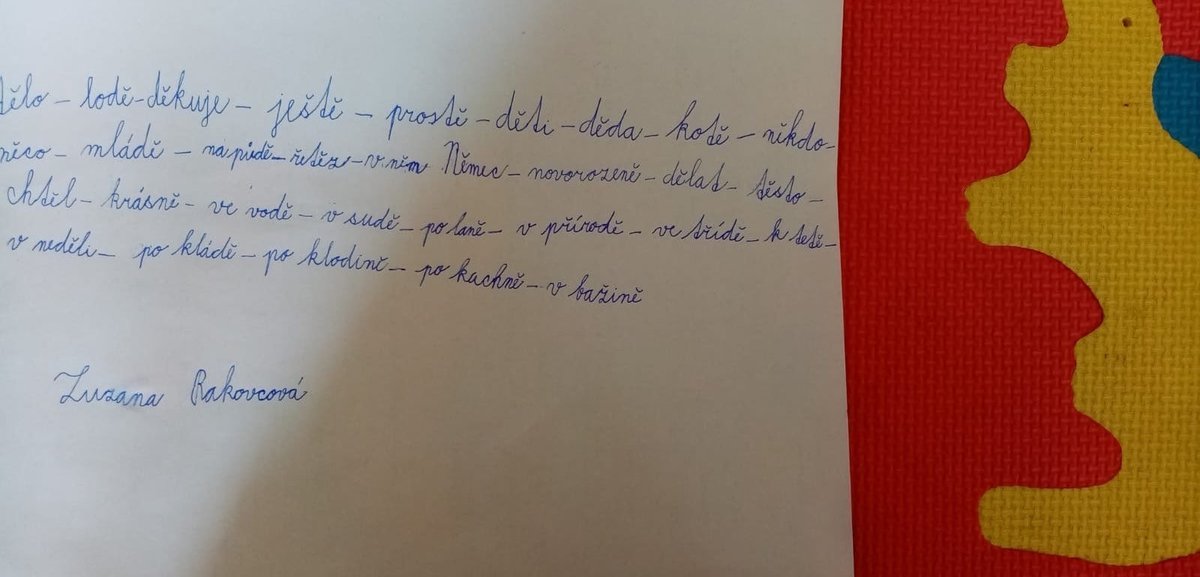 tělo - lodě - děkuje - ještě - prostě - děti - děda - kotě - někdo -
něco - mládě - na půdě - řetěz - v něm Němec - novorozeně - dělat - těsto -
chtěl - krásně - ve vodě - v sudě - po laně - v přírodě - ve třídě - k tetě -
v neděli - po kládě - po klodině - po kachně - v bažině
Zuzana Rakovcová